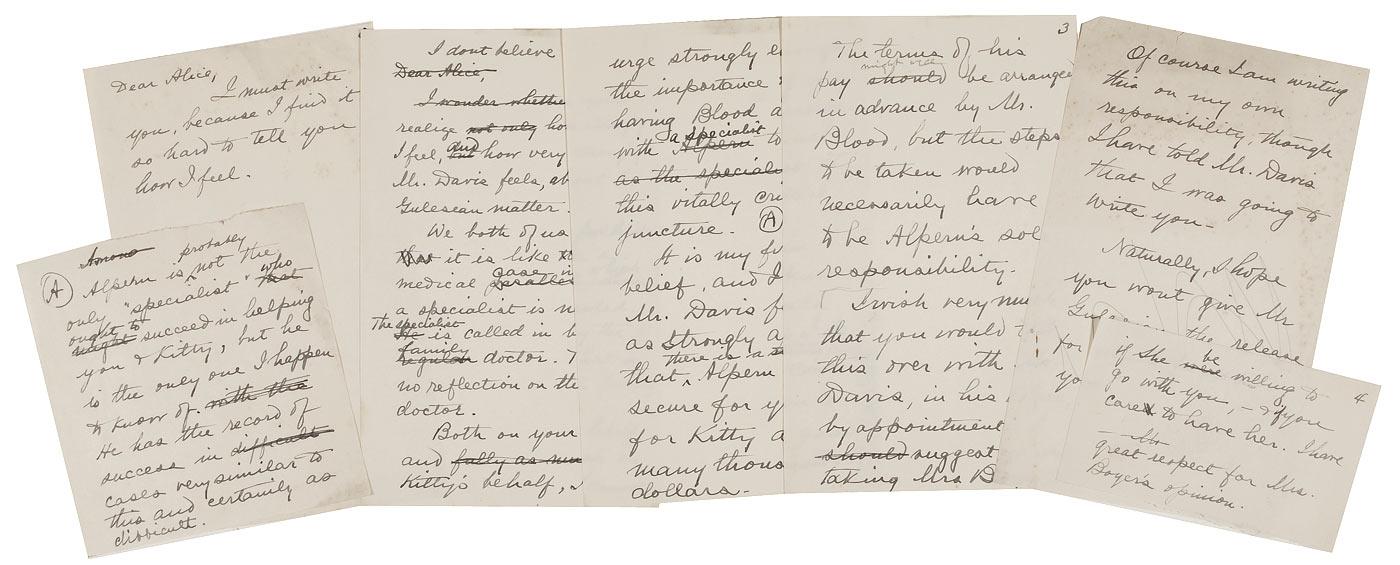 Dear Alice,
I must write
you, because I find it
so hard to tell you
how I feel.
A
Among
probably
Alpern is not the
only "specialist" who
that
ought to
might succeed in helping
you & Kitty, but he
is the only one I happen
to know of with the
He has the record of
success in difficult
cases very similar to
this and certainly as
difficult.
I dont believe
Dear Alice,
I wonder whethe
realize not only ho
I feel, and how very
but
Mr. Davis feels, ab
Gulesian matter.
We both of us
it is like
case in
medical parallel
a specialist is n
The specialist
He is called in b
family
regular doctor. T
no reflection on the
doctor.
Both on your
and fully as mu
Kitty's behalf,
urge strongly
the importance
having Blood a
a specialist
with Alpern to
as the speciali
this vitally cri
juncture. A
It is my fi
belief, and I
Mr. Davis f
as strongly a
there is a
that, Alpern
secure for y
for Kitty a
many thous
dollars.
3
The terms of his
might well
pay should be arranged
in advance by Mr.
Blood, but the steps
to be taken would
necessarily have
to be Alpern's sol
responsibility.
I wish very mu
that you would
this over with
Davis, in his
by appointment
should suggest
taking Mrs B
Of course I am writing
this on my own
responsibility, though
I have told Mr. Davis
that I was going to
write you-
Naturally, I hope
you wont give Mr
Gul the release
for
yo
4
if she were willing to
be
go with you, - & if you
care to have her. I have
Mr
great respect for Mrs.
Boyer's opinion.